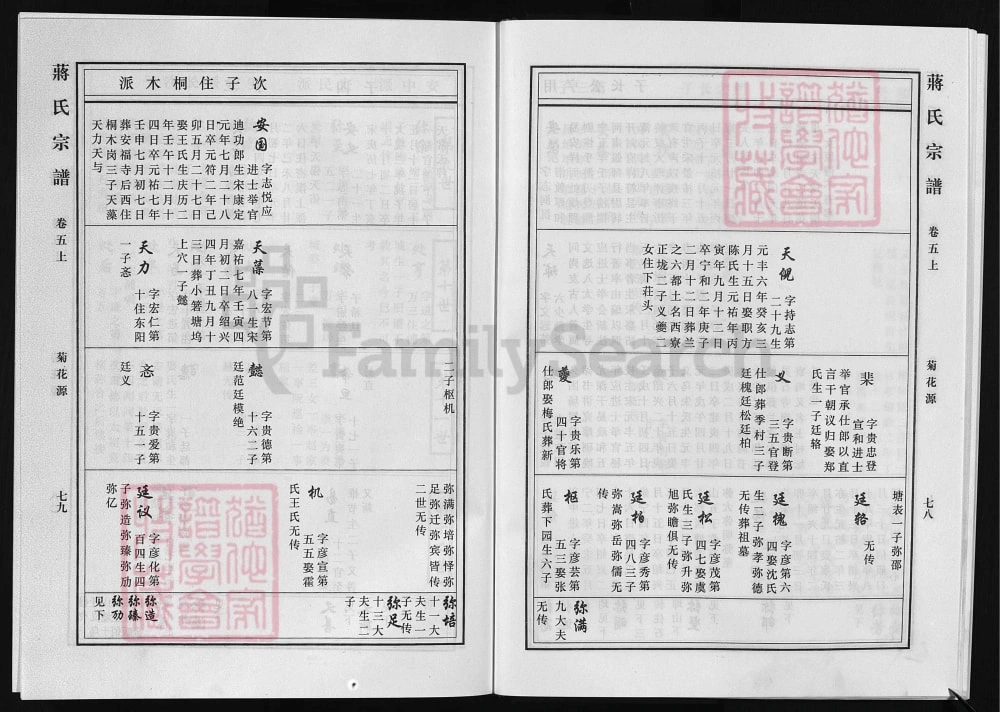 蔣氏宗譜
卷五上
菊花源
七八
天倪
字持志第
二十九生
元丰六年癸亥三
月十五日娶职方
陈氏生元祐年丙
寅年九月十二日
卒宁和二年庚子
二月十二日葬兰
之六都土名西寮
正垅二子义夔二
女住下荘头
棐
字贵忠登
宣和进士
举官承仕郎以直
言干朝议归娶郑
氏生一子廷辂
义
字贵断第
三五官登
仕郎葬季村三子
廷槐廷松廷柏
夔
字贵乐第
四十官将
仕郎娶梅氏葬新
塘表一子弥邵
廷辂
无传
廷槐
字彦第六
四娶沈氏
生二子弥孝弥德
无传葬祖墓
廷松
字彦茂第
四七娶虞
氏生三子弥升弥
旭弥瞻俱无传
廷柏
字彦秀第
四八三子
弥嵩弥岳弥儒无
传
枢
字彦芸第
五三娶张
氏葬下园生六子
弥满
九大夫
无传
蔣氏宗譜
卷五上
菊花源
七九
次子住桐木派
安国
字志悦应
进士举官
迪功郎生宋康定
元年七月二十八
日卒元符二年己
卯五月二十七日
娶王氏生庆历二
年壬午十二月十
四日卒元祐七年
壬申七月初七日
葬安福寺后西住
桐木岗三子天藻
天力天与
天藻
字宏节第
八一生宋
嘉祐七年壬寅四
月初二日卒绍兴
四年丁丑九月十
三日葬小箬塘坞
上穴一子懿
天力
字宏仁第
十住东阳
一子忞
二子枢机
懿
字贵德第
十六二子
廷范廷模绝
忞
字贵爱第
十五一子
廷义
弥满弥培弥怿弥
足弥迁弥宾皆传
二世无传
机
字彦宣第
五五娶霍
氏王氏无传
廷议
字彦化第
百四生四
子弥造弥臻弥劢
弥亿
弥培
十一大
夫生一
子无传
弥足
十三大
夫生二
子
弥造
弥臻
弥劢
见下